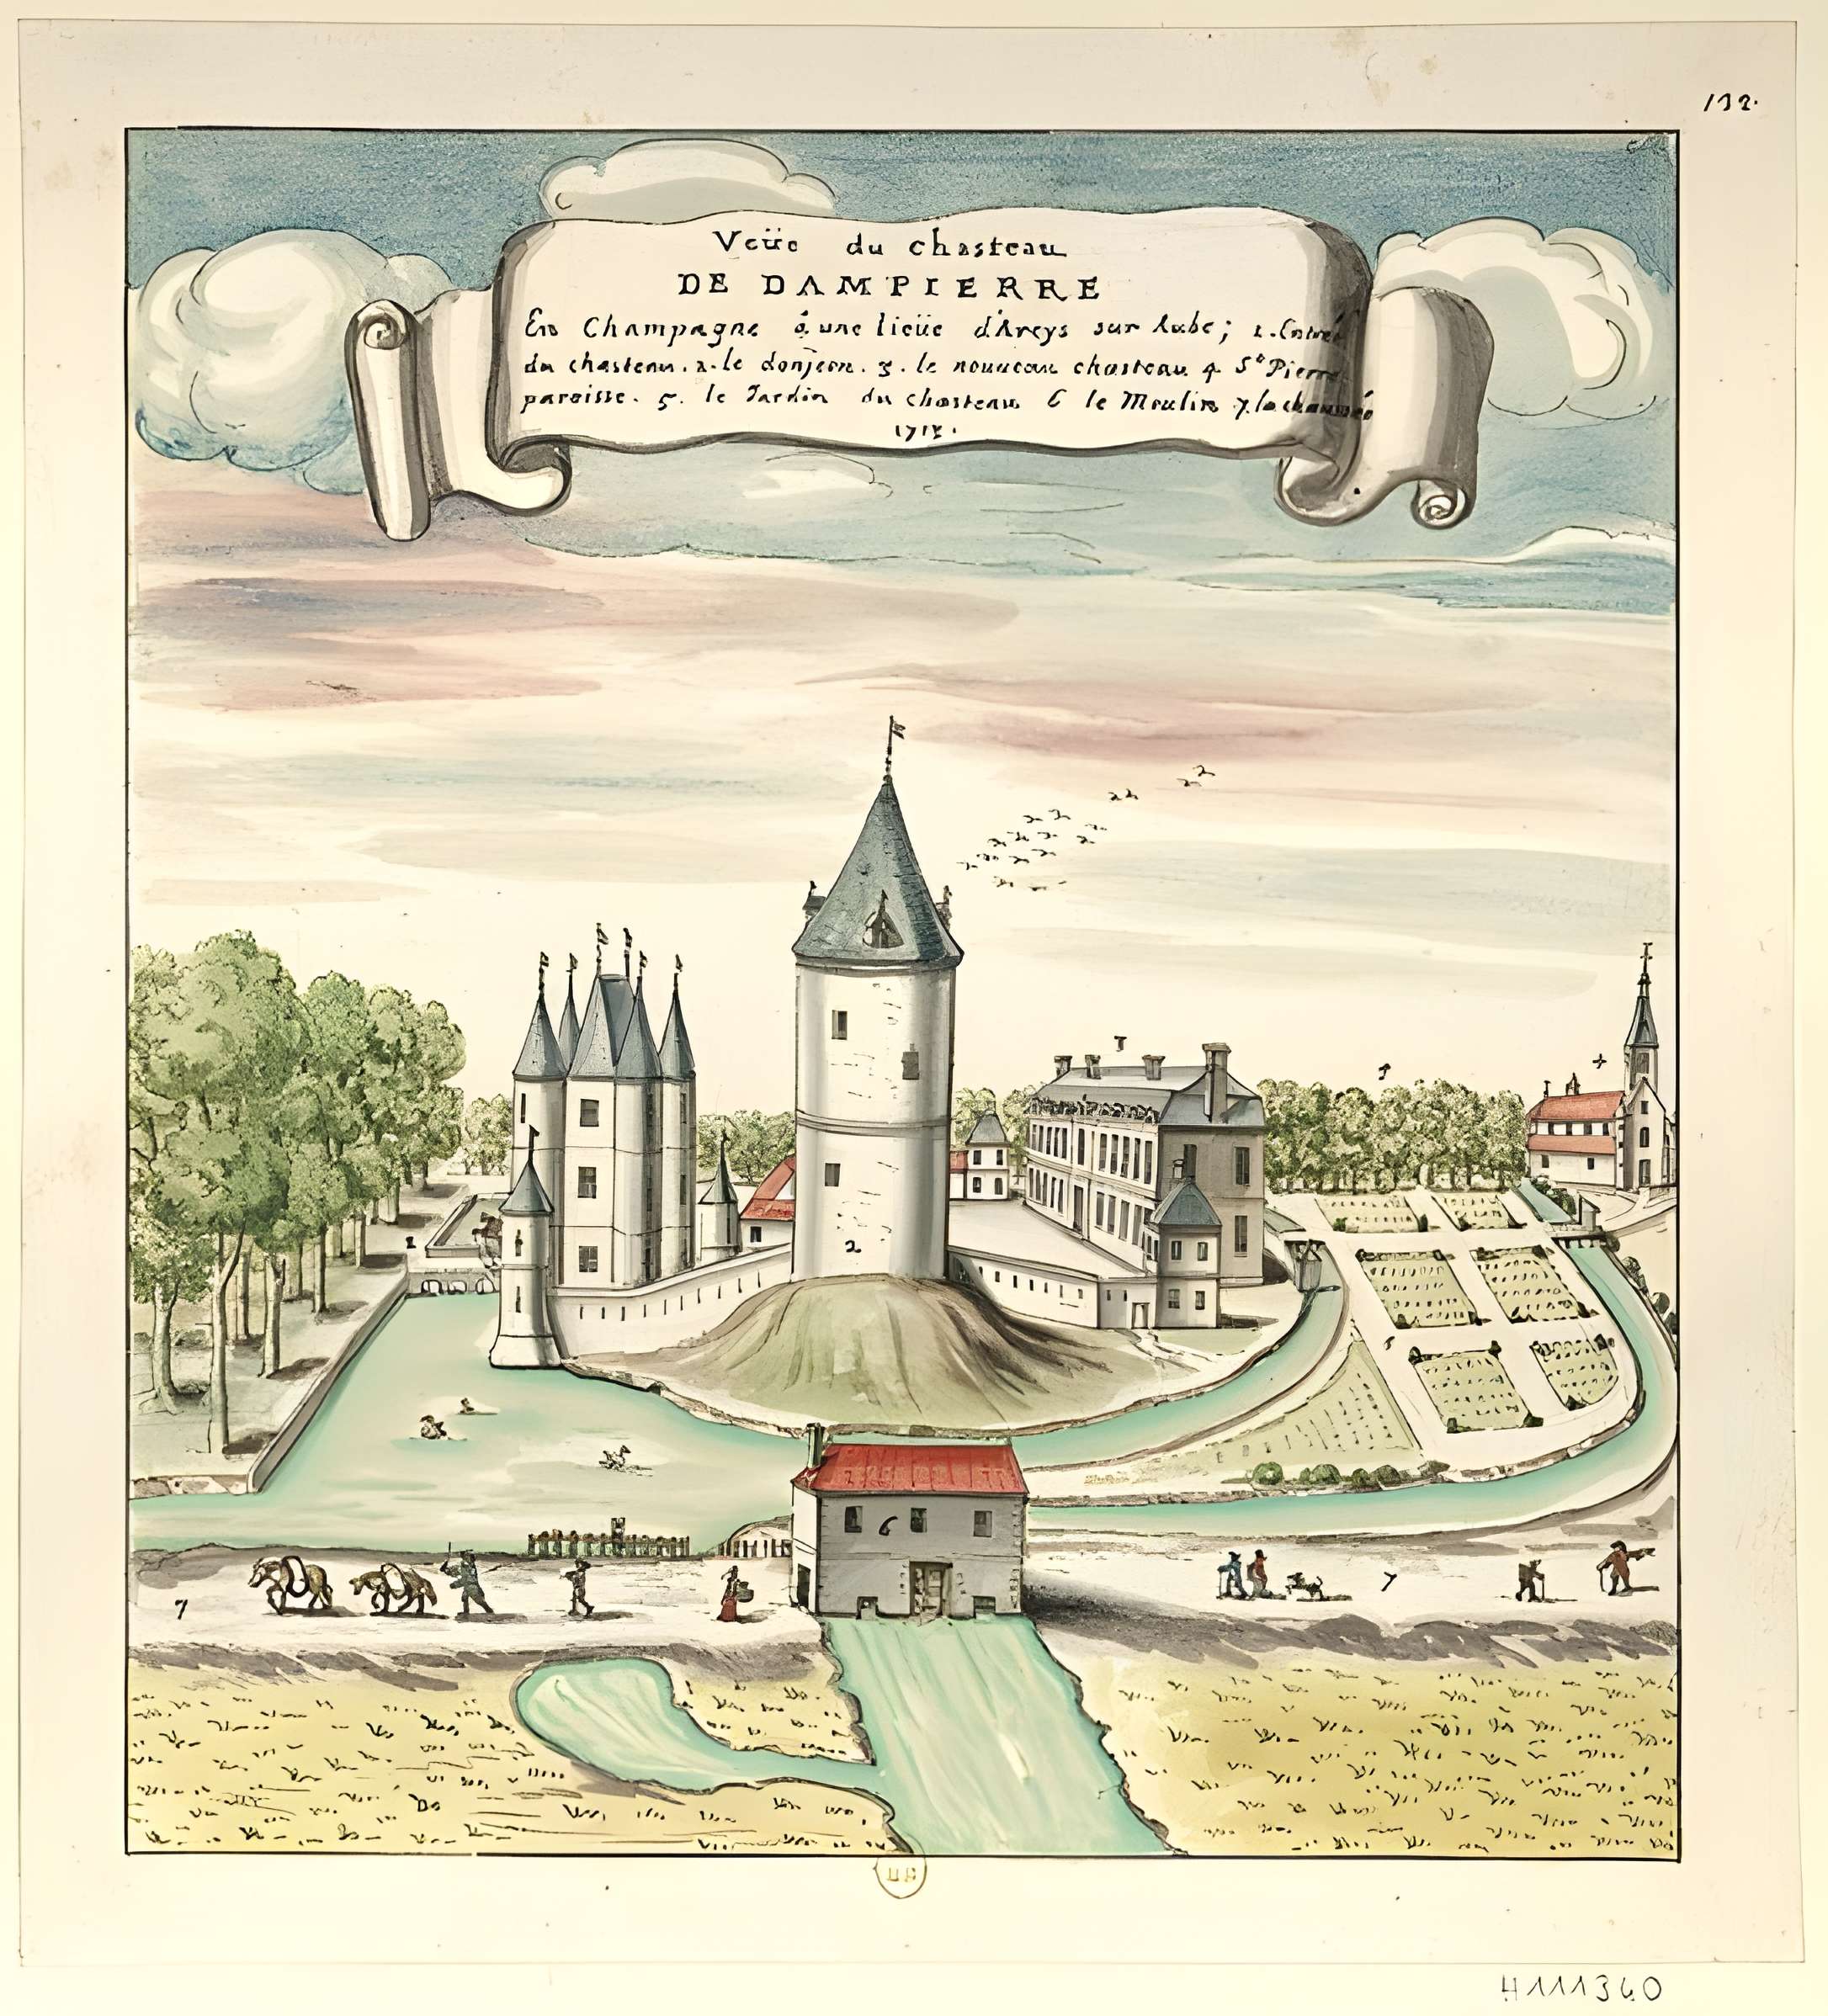 132.
Veüe du chasteau
DE DAMPIERRE
En Champagne à une lieüe d'Arcys sur Aube; 1. Entrée
du chasteau. 2. le donjeon. 3. le nouueau chasteau 4 St Pierre
paroisse. 5. le Jardin du chasteau 6 le Moulin 7. la chaussée
4
1
2
5
6
7
7
H111360